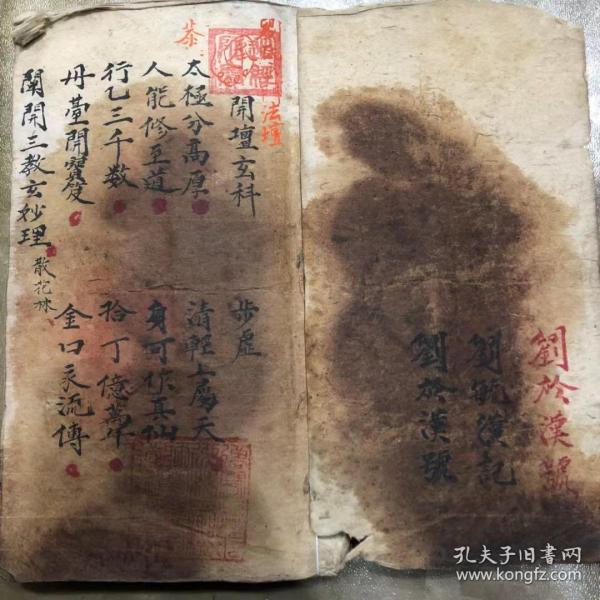 劉於漢號
劉毓漢記
劉於漢號
法壇
開壇玄科
步虛
太極分高厚
清輕上屬天
人能修至道
身可作真仙
行乙三千數
拾丁億萬年
丹臺開寶笈
金口永流傳
闡開三教玄妙理
散花林
孔夫子旧书网
www.kongfz.com